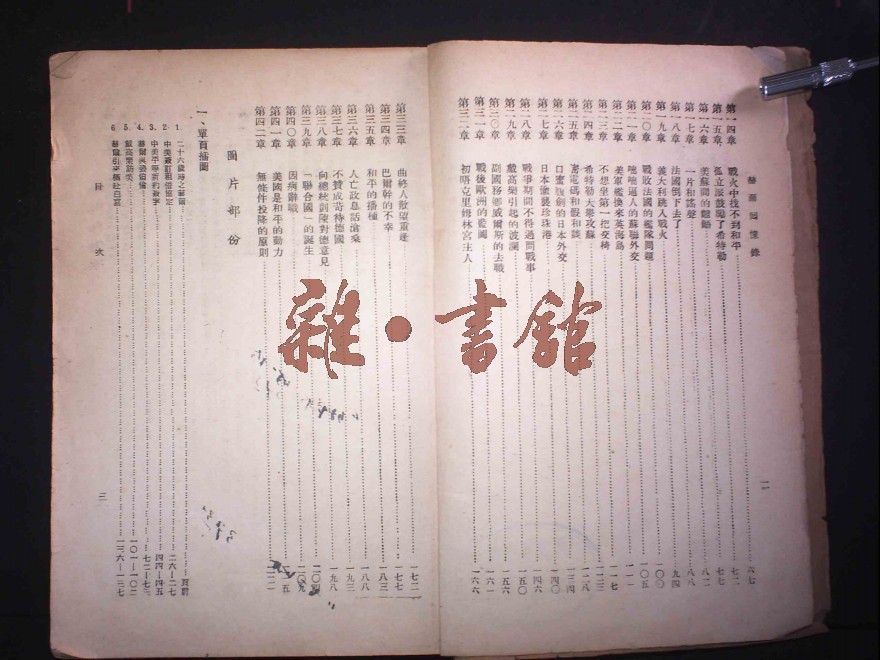 赫爾回憶錄
二
第一四章 戰火中找不到和平 六七
第一五章 孤立派鼓勵了希特勒 七二
第一六章 美蘇間的 七七
第一七章 一片和謠聲 八二
第一八章 法國倒下去了 八八
第一九章 義大利跳入戰火 九四
第二〇章 戰敗法國的艦隊問題 一〇〇
第二一章 咄咄逼人的蘇聯外交 一〇五
第二二章 美軍艦換來英海島 一一一
第二三章 不想坐第一把交椅 一一七
第二四章 希特勒大舉攻蘇 一二三
第二五章 密電碼和假和談 一二八
第二六章 口蜜腹劍的日本外交 一三四
第二七章 日本偷襲珍珠港 一四〇
第二八章 戰爭期間不得過問戰事 一四六
第二九章 戴高樂引起的波瀾 一五〇
第三〇章 副國務卿威爾斯的去職 一五六
第三一章 戰後歐洲的藍圖 一六一
第三二章 初晤克里姆林宮主人 一六六
第三三章 曲終人散望重逢 一七二
第三四章 巴爾幹的不幸 一七七
第三五章 和平的播種 一八三
第三六章 人亡政息話滄桑 一八八
第三七章 不贊成苛待德國 一九三
第三八章 向總統訓陳對德意見 一九八
第三九章 「聯合國」的誕生 二〇四
第四〇章 因病辭職 二〇九
第四一章 美國是和平的動力
第四二章 無條件投降的原則
圖片部份
一、單頁插圖
1. 二十六歲時之赫爾 頁對
2. 中美簽訂租借協定 二六—二七
3. 中美平等新約簽字 四四—四五
4. 赫爾與 七二—七三
5. 戴高樂訪美 一〇一—一〇二
6. 赫爾引來 赴白宮 一三六—一三七
目次
三
雜•書館